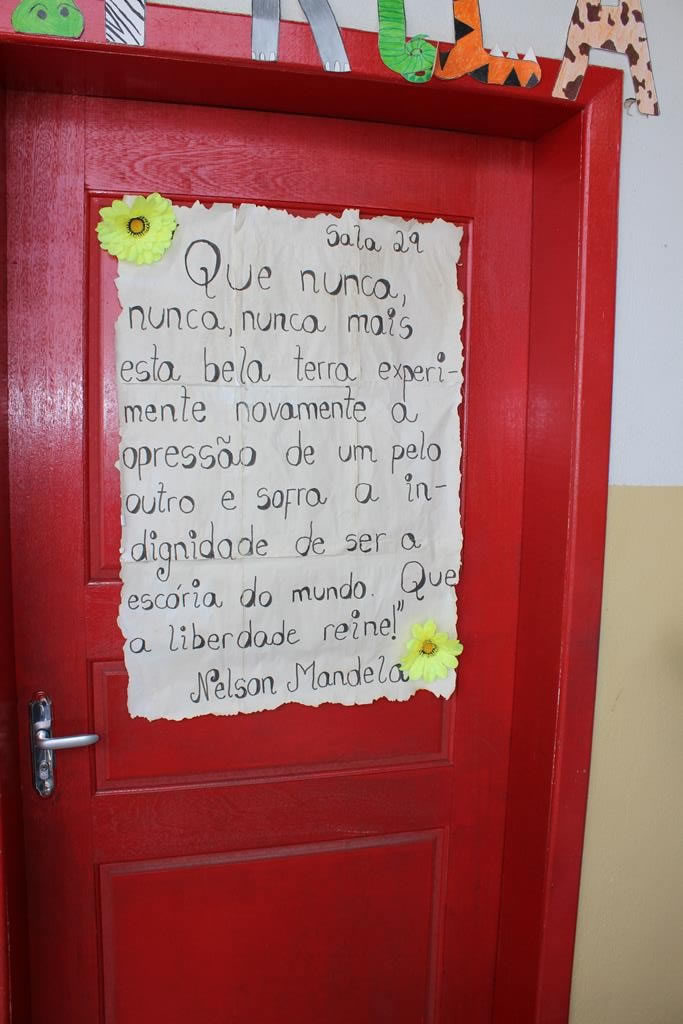 ÁFRICA
Sala 29
Que nunca,
nunca, nunca mais
esta bela terra experi-
mente novamente a
opressão de um pelo
outro e sofra a in-
dignidade de ser a
escória do mundo. Que
a liberdade reine!"
Nelson Mandela